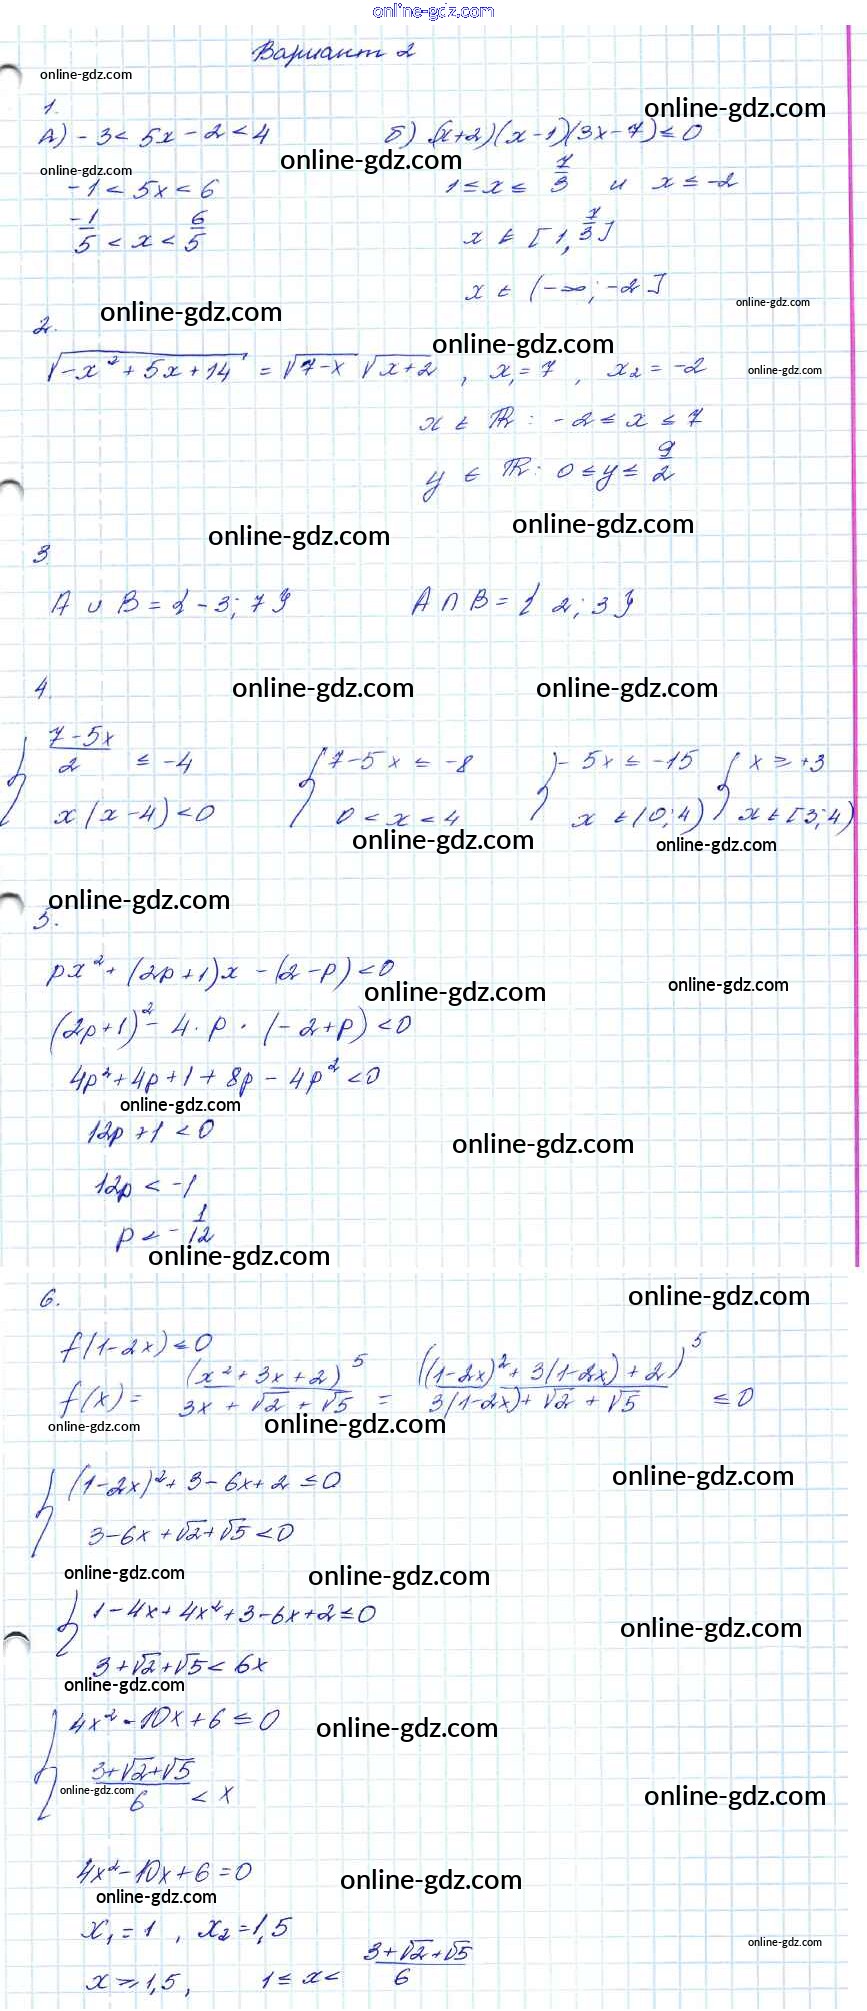 online-gdz.com
Вариант 2
online-gdz.com
1.
online-gdz.com
А) -3 < 5x - 2 < 4
б) (x+2)(x-1)(3x-7) ≤ 0
online-gdz.com
online-gdz.com
-1 < 5x < 6
1 ≤ x ≤ 7/3 и x ≤ -2
-1/5 < x < 6/5
x ∈ [1, 7/3]
x ∈ (-∞; -2]
online-gdz.com
online-gdz.com
2.
online-gdz.com
√(-x² + 5x + 14) = √(7-x) √(x+2), x₁ = 7, x₂ = -2
online-gdz.com
x ∈ ℝ: -2 ≤ x ≤ 7
y ∈ ℝ: 0 ≤ y ≤ 9/2
online-gdz.com
online-gdz.com
3
A ∪ B = {-3; 7}
A ∩ B = {2; 3}
4.
online-gdz.com
online-gdz.com
{ (7-5x)/2 ≤ -4 { 7-5x ≤ -8 { -5x ≤ -15 { x ≥ +3
x(x-4) < 0 0 < x < 4 x ∈ (0; 4) x ∈ [3; 4)
online-gdz.com
online-gdz.com
online-gdz.com
5.
px² + (2p+1)x - (2-p) < 0
online-gdz.com
online-gdz.com
(2p+1)² - 4·p·(-2+p) < 0
4p² + 4p + 1 + 8p - 4p² < 0
online-gdz.com
12p + 1 < 0
online-gdz.com
12p < -1
p < -1/12
online-gdz.com
6.
online-gdz.com
f(1-2x) ≤ 0
f(x) = (x² + 3x + 2)⁵/(3x + √2 + √5) = ((1-2x)² + 3(1-2x) + 2)⁵/(3(1-2x) + √2 + √5) ≤ 0
online-gdz.com
online-gdz.com
{ (1-2x)² + 3 - 6x + 2 ≤ 0
online-gdz.com
3 - 6x + √2 + √5 < 0
online-gdz.com
online-gdz.com
{ 1 - 4x + 4x² + 3 - 6x + 2 ≤ 0
online-gdz.com
3 + √2 + √5 < 6x
online-gdz.com
{ 4x² - 10x + 6 ≤ 0
online-gdz.com
(3+√2+√5)/6 < x
online-gdz.com
online-gdz.com
4x² - 10x + 6 = 0
online-gdz.com
online-gdz.com
x₁ = 1, x₂ = 1,5
online-gdz.com
x ≥ 1,5, 1 ≤ x < (3+√2+√5)/6